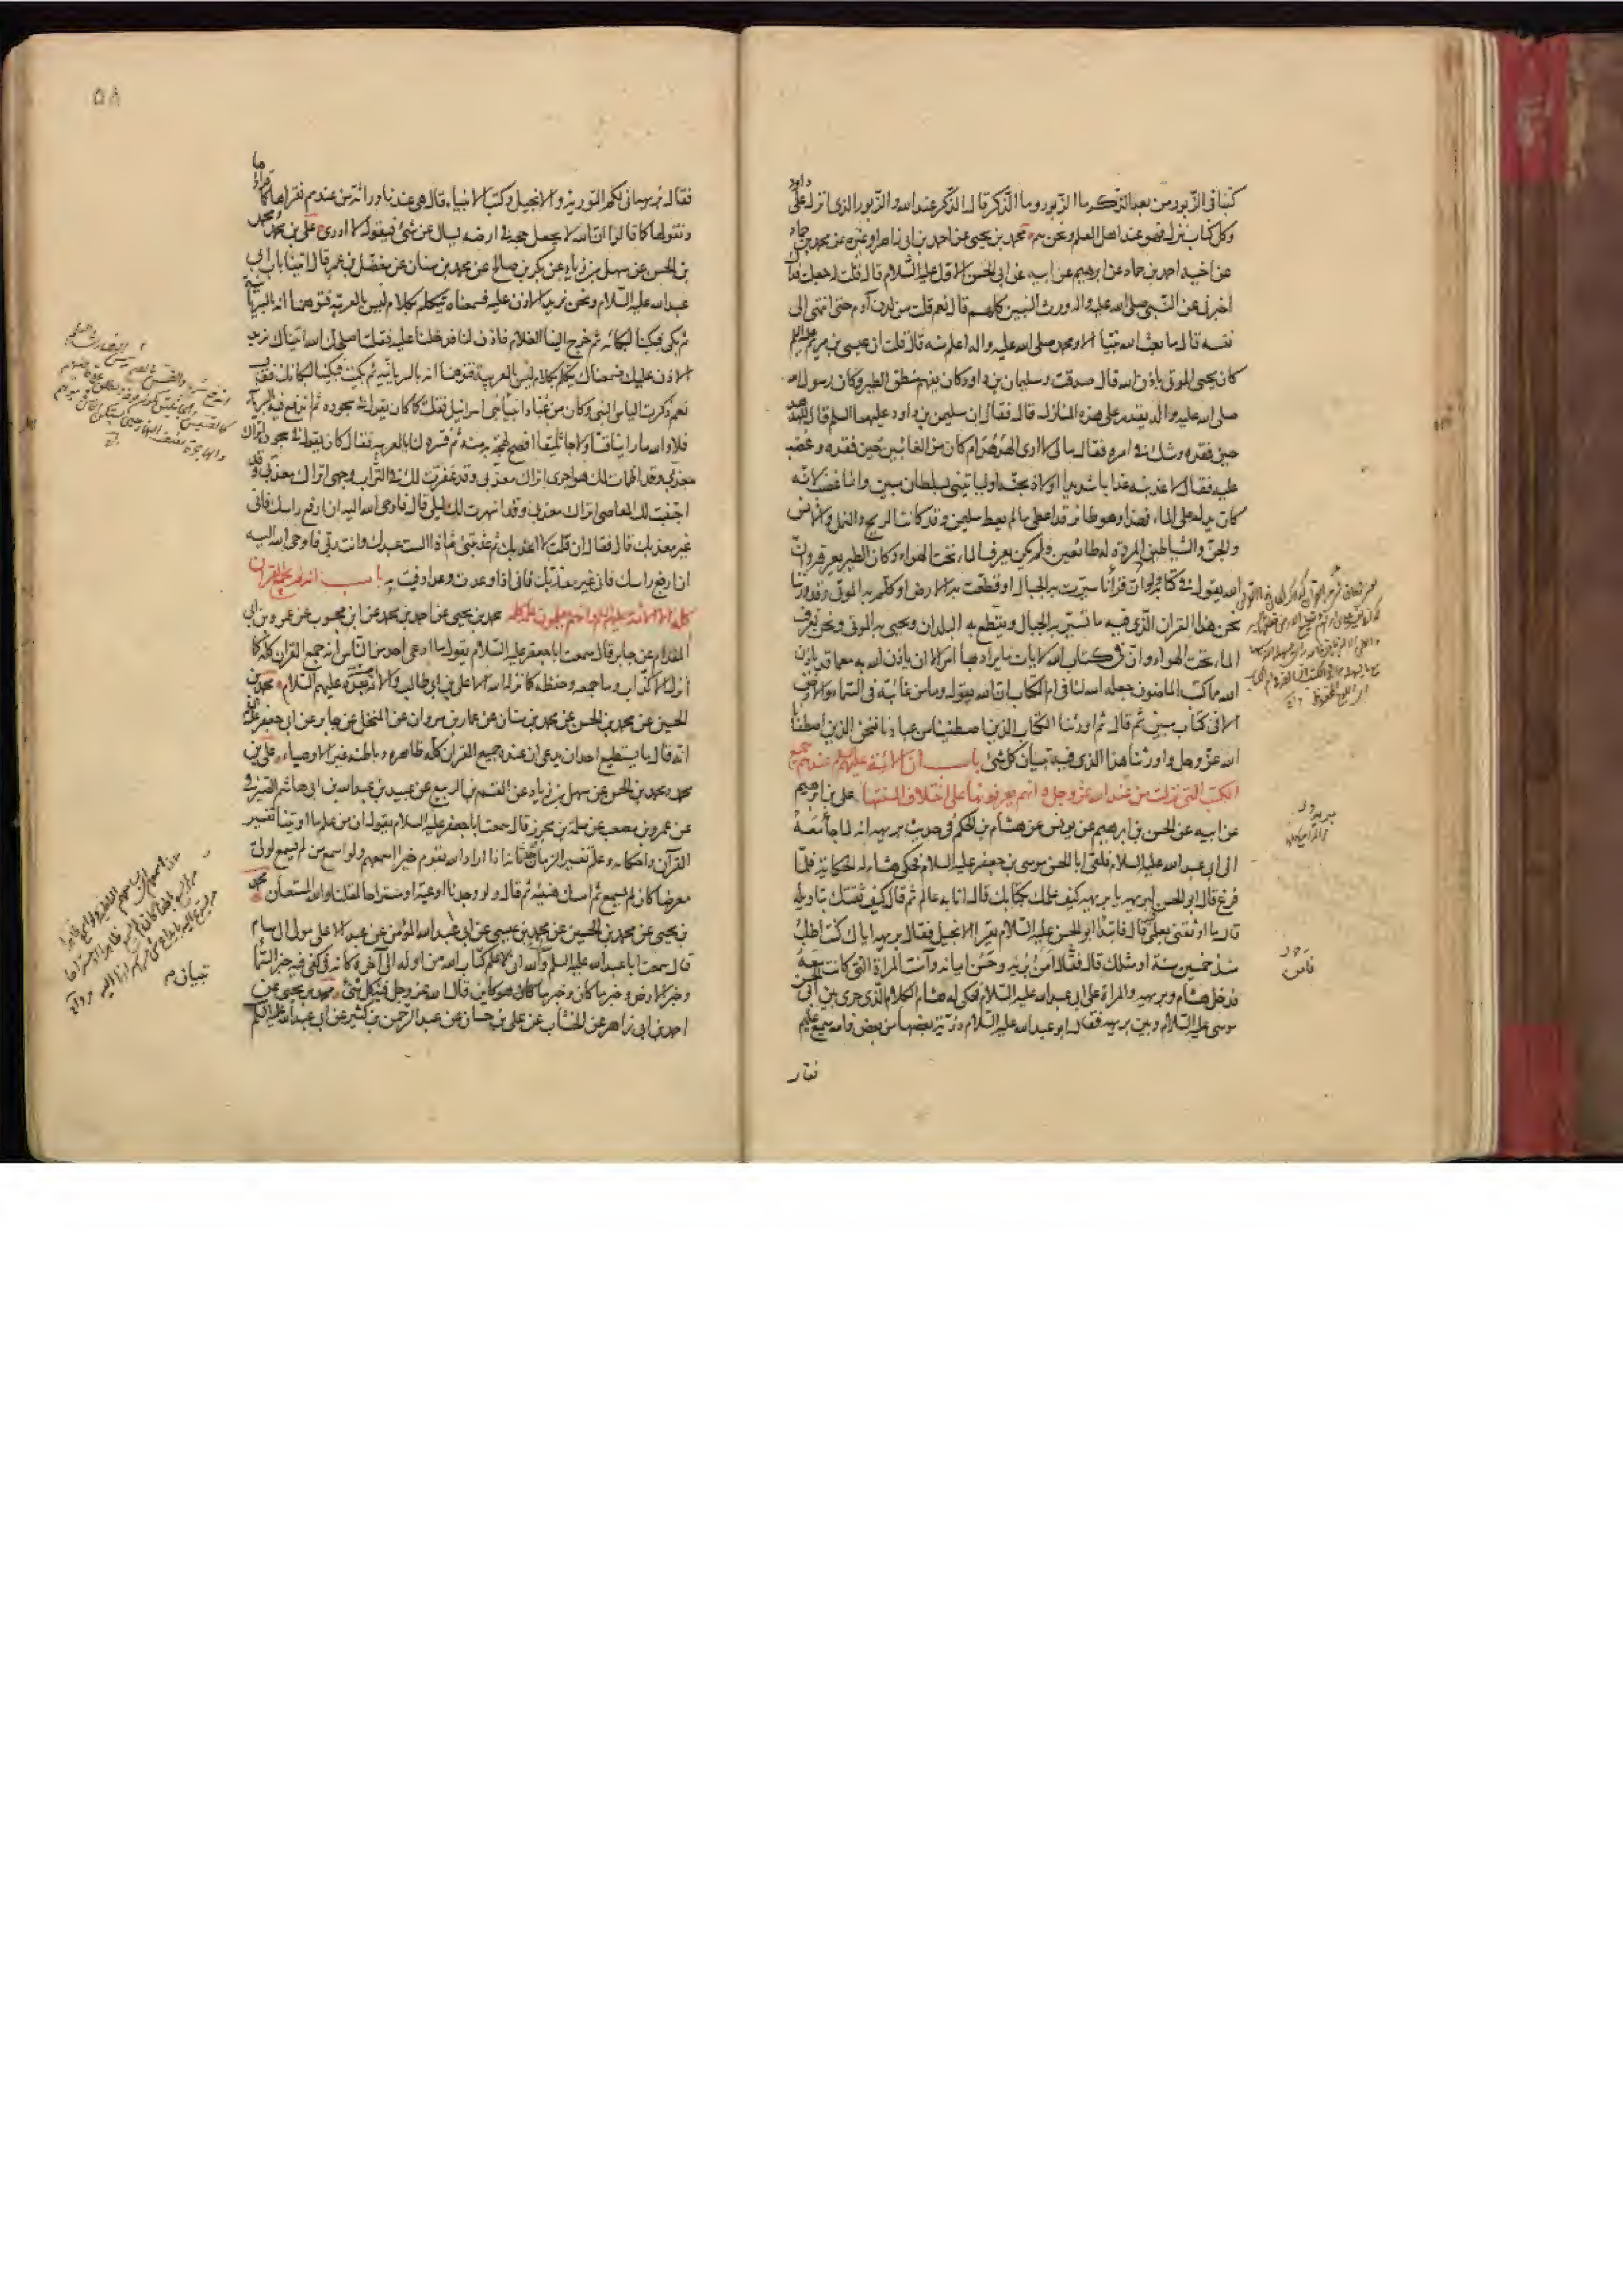 كتبنا فى الزبور من بعد الذكر ما الزبور وما الذكر قال الذكر عند الله والزبور الذى انزل على داود
وكل كتاب نزل فهو عند اهل العلم ونحن هم محمد بن يحيى عن احمد بن ابى زاهر او غيره عن محمد بن حماد
عن اخيه احمد بن حماد عن ابرهيم عن ابيه عن ابى الحسن الاول عليه السلام قال قلت له جعلت فداك
اخبرنى عن النبى صلى الله عليه واله ورث النبيين كلهم قال نعم قلت من لدن آدم حتى انتهى الى
نفسه قال ما بعث الله نبيا الا ومحمد صلى الله عليه واله اعلم منه قال قلت ان عيسى بن مريم
كان يحيى الموتى باذن الله قال صدقت وسليمان بن داود كان يفهم منطق الطير وكان رسول الله
صلى الله عليه واله يقدر على هذه المنازل قال فقال ان سليمن بن داود عليهما السلم قال للهدهد
حين فقده وشك فى امره فقال مالى لا ارى الهدهد ام كان من الغائبين حين فقده وغضب
عليه فقال لاعذبنه عذابا شديدا او لاذبحنه او ليأتينى بسلطان مبين وانما غضب لانه
كان يدله على الماء فهذا وهو طائر قد اعطى ما لم يعط سليمن وقد كانت الريح والنمل والانس
والجن والشياطين المردة له طائعين ولم يكن يعرف الماء تحت الهواء وكان الطير يعرفه وان
الله يقول فى كتابه ولو ان قرآنا سيرت به الجبال او قطعت به الارض او كلم به الموتى وقد ورثنا
نحن هذا القران الذى فيه ما تسير به الجبال ويقطع به البلدان ويحيى به الموتى ونحن نعرف
الماء تحت الهواء وان فى كتاب الله لايات ما يراد بها امر الا ان ياذن الله به مع ما قد ياذن
الله مما كتبه الماضون جعله الله لنا فى ام الكتاب ان الله يقول وما من غائبة فى السماء والارض
الا فى كتاب مبين ثم قال ثم اورثنا الكتاب الذين اصطفينا من عبادنا فنحن الذين اصطفانا
الله عز وجل واورثنا هذا الذى فيه تبيان كل شئ باب ان الائمة عليهم السلام عندهم جميع
الكتب التى نزلت من عند الله عز وجل وانهم يعرفونها على اختلاف السنتها على بن ابرهيم
عن ابيه عن الحسن بن ابرهيم عن يونس عن هشام بن الحكم فى حديث بريه انه لما جاء معه
الى ابى عبد الله عليه السلام فلقى ابا الحسن موسى بن جعفر عليه السلام فحكى هشام له الحكاية فلما
فرغ قال ابو الحسن لبريه يا بريه كيف علمك بكتابك قال انا به عالم ثم قال كيف ثقتك بتاويله
قال ما اوثقنى بعلمى قال فابتدأ ابو الحسن عليه السلام يقرأ الانجيل فقال بريه اياك كنت اطلب
منذ خمسين سنة او مثلك قال فقال امن بريه وحسن ايمانه وآمنت المرأة التى كانت معه
فدخل هشام وبريه والمرأة على ابى عبد الله عليه السلام فحكى له هشام الكلام الذى جرى بين ابى الحسن
موسى عليه السلام وبين بريه فقال ابو عبد الله عليه السلام ذرية بعضها من بعض والله سميع عليم
فقال
٥٨
فقال بريه انى لكم التورية والانجيل وكتب الانبياء قال هى عندنا وراثة من عندهم نقرأها كما قرأوها
ونقولها كما قالوا ان الله لا يجعل حجة فى ارضه يسال عن شئ فيقول لا ادرى على بن محمد ومحمد
بن الحسن عن سهل بن زياد عن بكر بن صالح عن محمد بن سنان عن مفضل بن عمر قال اتينا باب ابى
عبد الله عليه السلام ونحن نريد الاذن عليه فسمعناه يتكلم بكلام ليس بالعربية فتوهمنا انه بالسريانية
ثم بكى فبكينا لبكائه ثم خرج الينا الغلام فاذن لنا فدخلنا عليه فقلت اصلحك الله اتيناك نريد
الاذن عليك فسمعناك تتكلم بكلام ليس بالعربية فتوهمنا انه بالسريانية ثم بكيت فبكينا لبكائك فقال
نعم ذكرت الياس النبى وكان من عباد انبياء بنى اسرائيل فقلت كما كان يقول فى سجوده ثم اندفع فيه بالسريانية
فلا والله ما راينا قسا ولا جاثليقا افصح لهجة به منه ثم فسره لنا بالعربية فقال كان يقول فى سجوده اتراك
معذبى وقد اظمأت لك هواجرى اتراك معذبى وقد عفرت لك فى التراب وجهى اتراك معذبى وقد
اجتنبت لك المعاصى اتراك معذبى وقد اسهرت لك ليلى قال فاوحى الله اليه ان ارفع راسك فانى
غير معذبك قال فقال ان قلت لا اعذبك ثم عذبتنى ماذا الست عبدك وانت ربى فاوحى الله اليه
ان ارفع راسك فانى غير معذبك فانى اذا وعدت وعدا وفيت به باب انه لم يجمع القرآن
كله الا الائمة عليهم السلام وانهم يعلمون علمه كله محمد بن يحيى عن احمد بن محمد عن ابن محبوب عن عمرو بن ابى
المقدام عن جابر قال سمعت ابا جعفر عليه السلام يقول ما ادعى احد من الناس انه جمع القران كله كما
انزل الا كذاب وما جمعه وحفظه كما نزله الله الا على بن ابى طالب والائمة من بعده عليهم السلام محمد بن
الحسين عن محمد بن الحسن عن محمد بن سنان عن عمار بن مروان عن المنخل عن جابر عن ابى جعفر عليه السلام
انه قال ما يستطيع احد ان يدعى ان عنده جميع القران كله ظاهره وباطنه غير الاوصياء على بن
محمد ومحمد بن الحسن عن سهل بن زياد عن القسم بن الربيع عن عبيد بن عبد الله بن ابى هاشم الصيرفى
عن عمرو بن مصعب عن سلمة بن محرز قال سمعت ابا جعفر عليه السلام يقول ان من علم ما اوتينا تفسير
القرآن واحكامه وعلم تغيير الزمان وحدثانه اذا اراد الله بقوم خيرا اسمعهم ولو اسمع من لم يسمع لولى
معرضا كان لم يسمع ثم امسك هنيئة ثم قال ولو وجدنا اوعية او مستراحا لقلنا والله المستعان محمد
بن يحيى عن محمد بن الحسين عن محمد بن عيسى عن ابى عبد الله المؤمن عن عبد الاعلى مولى ال سام
قال سمعت ابا عبد الله عليه السلم والله انى لاعلم كتاب الله من اوله الى آخره كانه فى كفى فيه خبر السماء
وخبر الارض وخبر ما كان وخبر ما هو كاين قال الله عز وجل فيه تبيان كل شئ محمد بن يحيى عن
احمد بن ابى زاهر عن الخشاب عن على بن حسان عن عبد الرحمن بن كثير عن ابى عبد الله عليه السلم
تبيان م